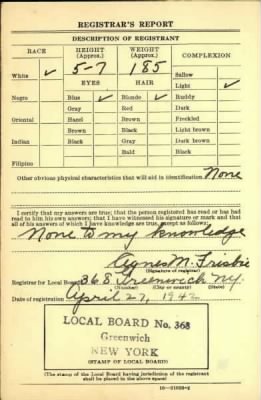 REGISTRAR'S REPORT
DESCRIPTION OF REGISTRANT
RACE HEIGHT (Approx.) WEIGHT (Approx.) COMPLEXION
White ✓ 5-7 185 Sallow
EYES HAIR Light ✓
Negro Blue ✓ Blonde ✓ Ruddy
Gray Red Dark
Oriental Hazel Brown Freckled
Brown Black Light brown
Indian Black Gray Dark brown
Bald Black
Filipino
Other obvious physical characteristics that will aid in identification None
I certify that my answers are true; that the person registered has read or has had
read to him his own answers; that I have witnessed his signature or mark and that
all of his answers of which I have knowledge are true, except as follows:
None to my knowledge
Agnes M. Frisbie
(Signature of registrar)
Registrar for Local Board 368 Greenwich N.Y.
(Number) (City or county) (State)
Date of registration April 27, 1942
LOCAL BOARD No. 368
Greenwich
NEW YORK
(STAMP OF LOCAL BOARD)
(The stamp of the Local Board having jurisdiction of the registrant
shall be placed in the above space)